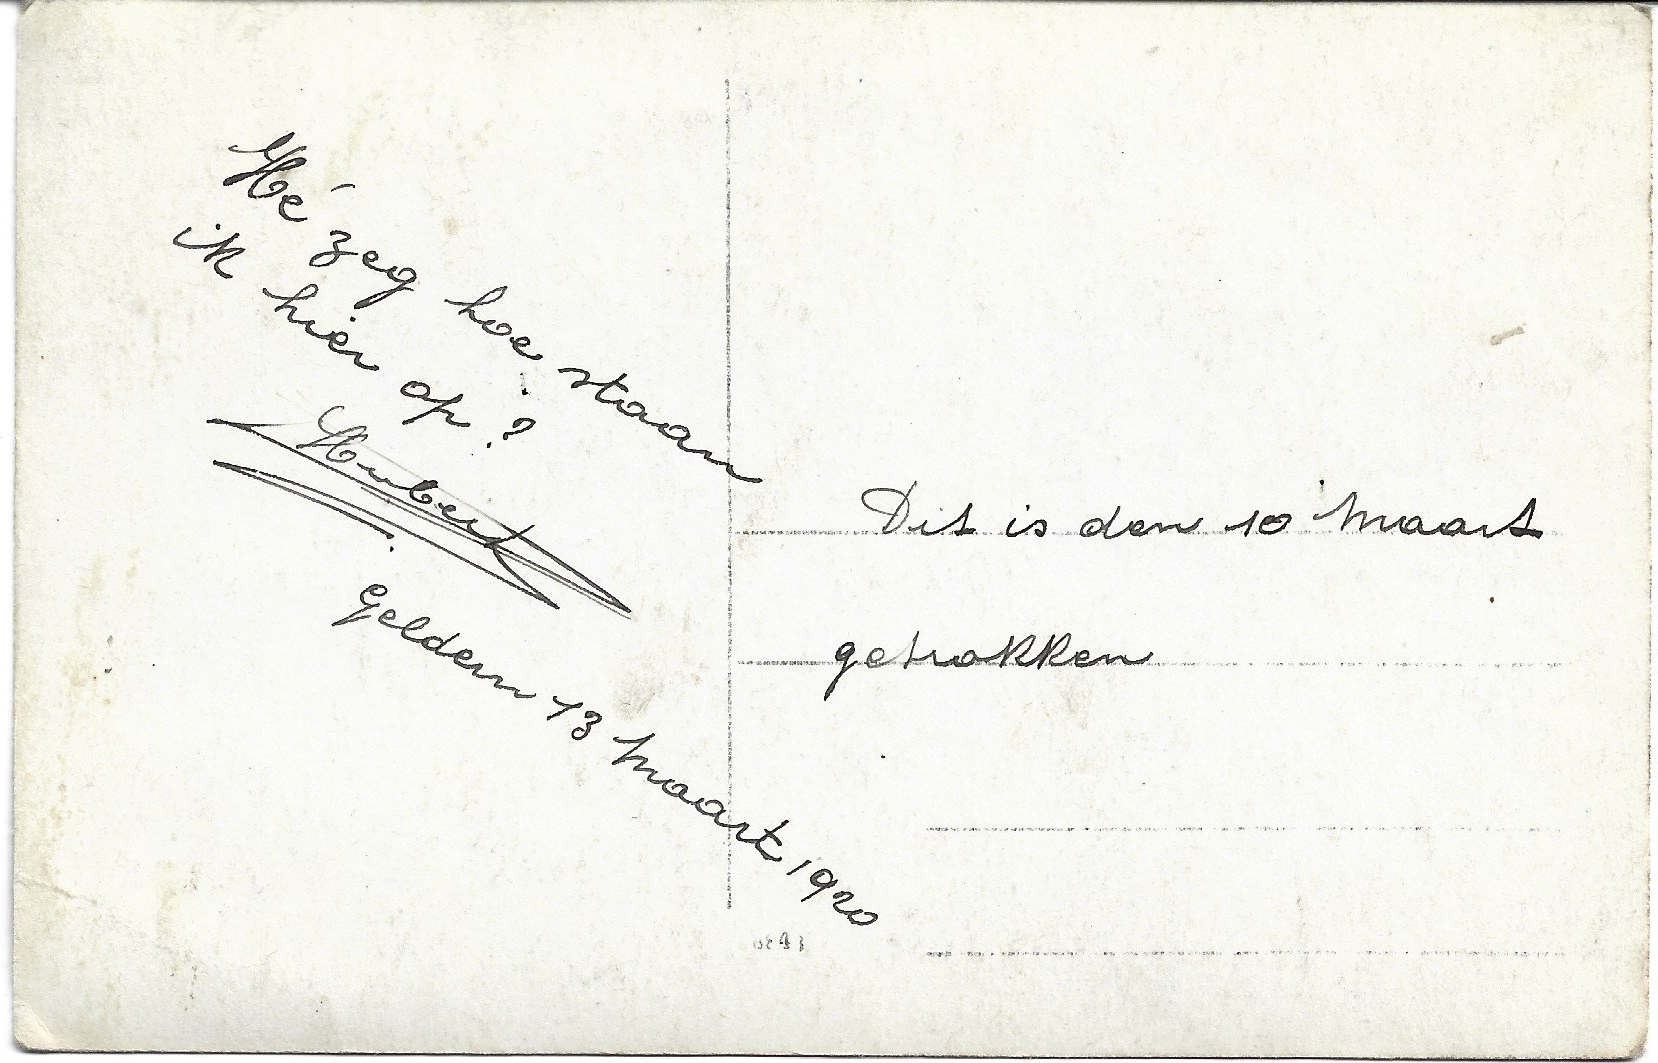 Hé zeg hoe staan
ik hier op?
Hubert
Geldern 13 Maart 1920
Dit is den 10 Maart
getrokken